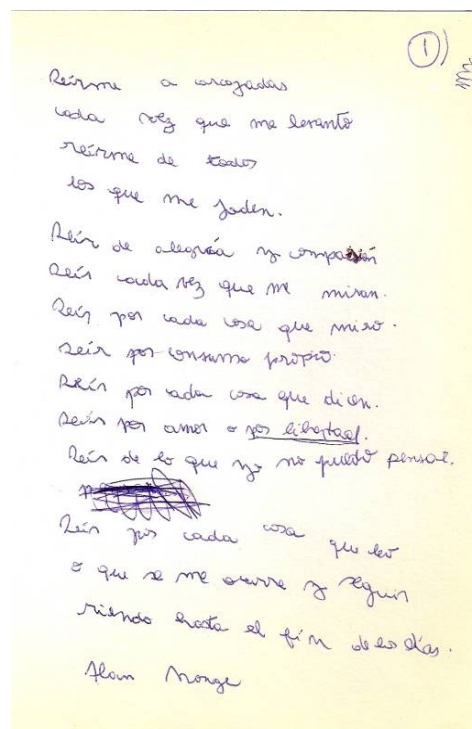 1
Reírme a carcajadas
cada vez que me levanto
reírme de todos
los que me joden.
Reír de alegría y compasión
Reír cada vez que me miran.
Reír por cada cosa que miro.
Reír por consumo propio.
Reír por cada cosa que dicen.
Reír por amor o por libertad.
Reír de lo que yo no puedo pensar.
Reír por cada cosa que leo
o que se me ocurre y seguir
riendo hasta el fin de los días.
Alan Monge